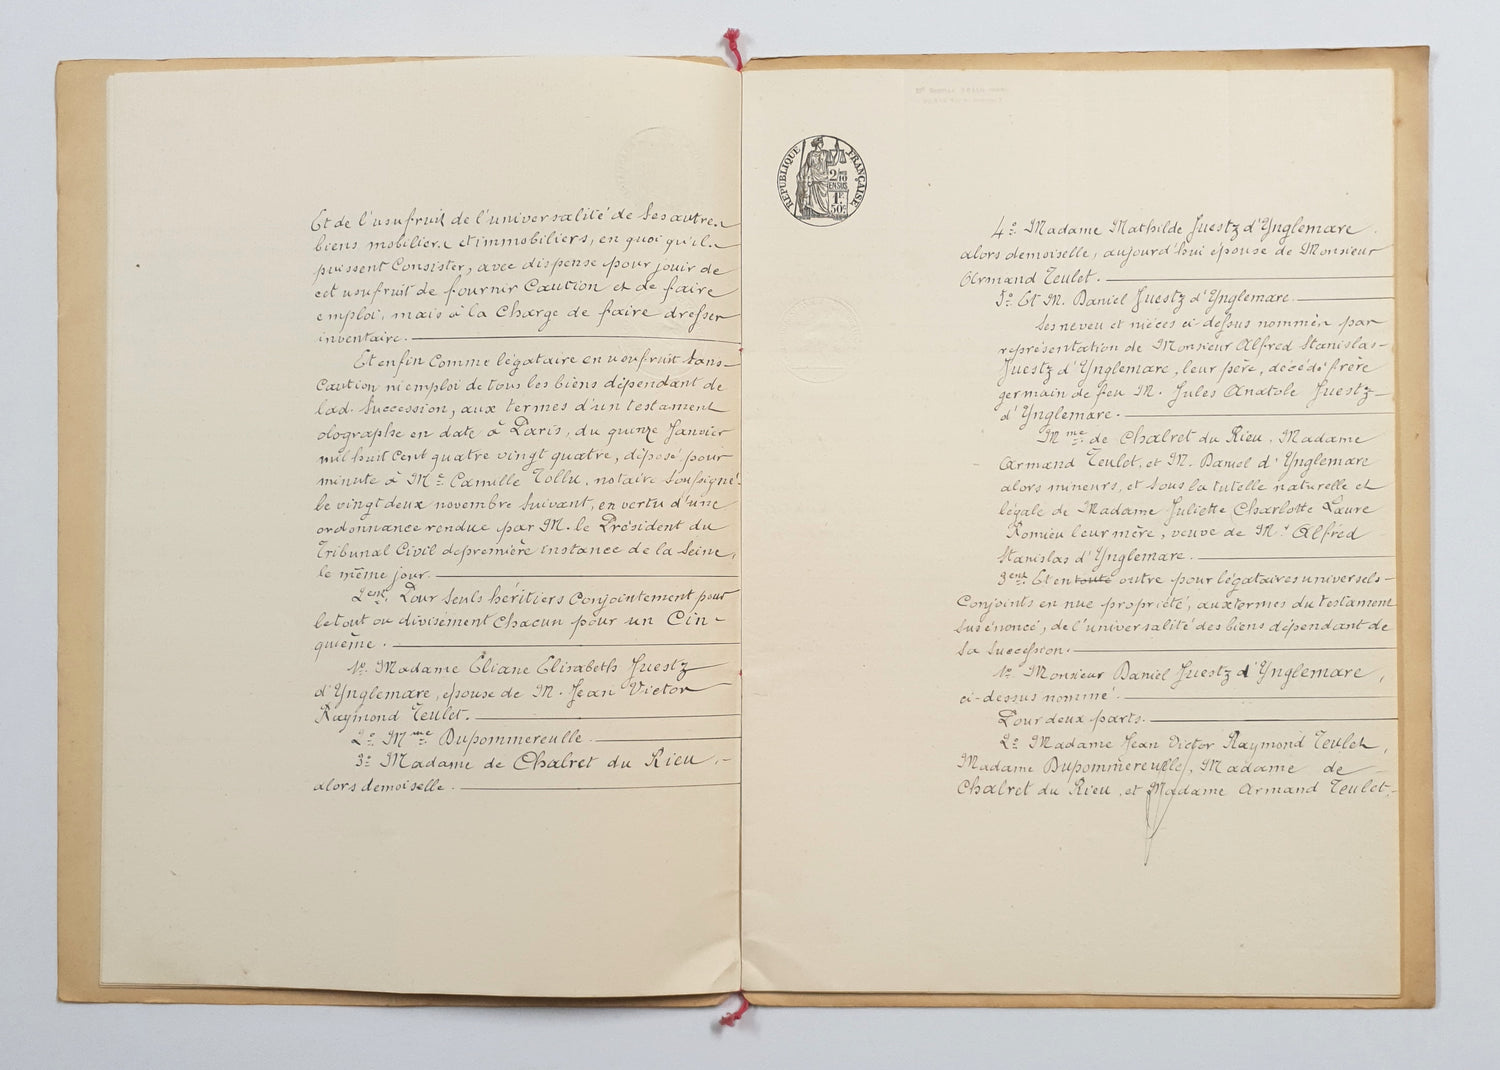 Et de l'usufruit de l'universalité de ses autres
biens mobiliers et immobiliers, en quoi qu'ils
puissent Consister, avec dispense pour jouir de
cet usufruit de fournir Caution et de faire
emploi, mais à la Charge de faire dresser
inventaire.
Et enfin Comme légataire en usufruit sans
Caution ni emploi de tous les biens dépendant de
lad. Succession, aux termes d'un testament
olographe en date à Paris, du quinze Janvier
mil huit Cent quatre vingt quatre, déposé pour
minute à Me Camille Tollu, notaire soussigné
le vingt deux novembre Suivant, en vertu d'une
ordonnance rendue par M. le Président du
Tribunal Civil de première instance de la Seine,
le même jour.
2ent. Pour seuls héritiers Conjointement pour
le tout ou divisément Chacun pour un Cin-
quième.
1º. Madame Eliane Elisabeth Juestz
d'Ynglemare, épouse de M. Jean Victor
Raymond Teulet.
2º. Mme Dupommereulle.
3º Madame de Chalret du Rieu,
alors demoiselle.
RÉPUBLIQUE FRANÇAISE
2/10
EN SUS
1F
50c
4º. Madame Mathilde Juestz d'Ynglemare.
alors demoiselle, aujourd'hui épouse de Monsieur
Armand Teulet.
5º. Et M. Daniel Juestz d'Ynglemare.
Ses neveu et nièces ci-dessus nommés par
représentation de Monsieur Alfred Stanislas
Juestz d'Ynglemare, leur père, décédé frère
germain de feu M. Jules Anatole Juestz
d'Ynglemare.
Mme de Chalret du Rieu, Madame
Armand Teulet, et M. Daniel d'Ynglemare
alors mineurs, et sous la tutelle naturelle et
légale de Madame Juliette Charlotte Laure
Romieu leur mère, veuve de Mr Alfred
Stanislas d'Ynglemare.
3ent. Et en toute outre pour légataires universels
Conjoints en nue propriété, aux termes du testament
susénoncé, de l'universalité des biens dépendant de
sa succession.
1º. Monsieur Daniel Juestz d'Ynglemare,
ci-dessus nommé.
Pour deux parts.
2º Madame Jean Victor Raymond Teulet,
Madame Dupommereulle, Madame de
Chalret du Rieu, et Madame Armand Teulet,